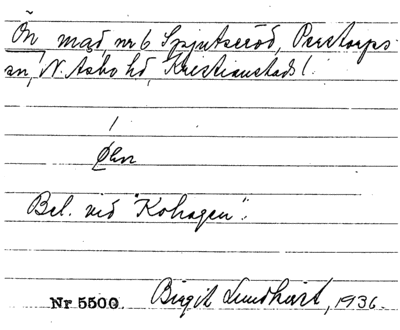 Ön mad, nr 6 Spjutseröd, Perstorps
sn, N. Åsbo hd, Kristianstads l.
Bel. vid "Kohagen".
Nr 5500 Birgit Lundkvist, 1936.